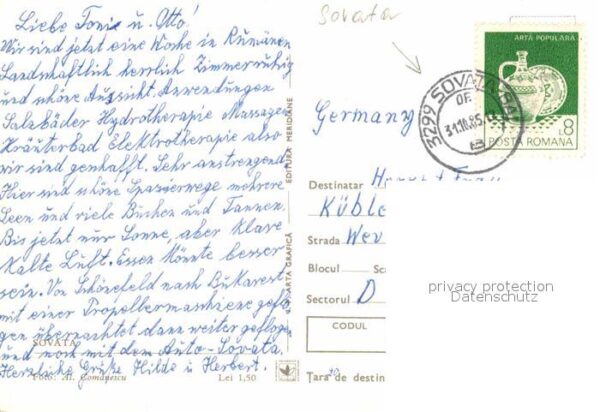 Liebe Toni u. Otto!
Wir sind jetzt eine Woche in Rumänien
Landschaftlich herrlich Zimmer ruhig
und schöne Aussicht. Anwendungen
Salzbäder Hydrotherapie Massagen
Kräuterbad Elektrotherapie also
wir sind geschafft. Sehr anstrengend.
Hier sind schöne Spazierwege mehrere
Seen und viele Buchen und Tannen.
Bis jetzt nur Sonne, aber klare
kalte Luft. Essen könnte besser
sein. Von Schönefeld nach Bukarest
mit einer Propellermaschiene geflo
gen übernachtet dann weiter geflogen
und noch mit dem Auto-Sovata.
Herzliche Grüße Hilde u. Herbert.
SOVATA
Foto: Al. Comănescu
Lei 1,50
ARTA GRAFICĂ
EDITURA MERIDIANE
Sovata
ARTĂ POPULARĂ
L8
POSTA ROMANA
3299 SOVATA
OF.
31.10.85
Germany
Destinatar
Küble
Strada We
Blocul
Sc
Sectorul D
CODUL
Țara de destin
privacy protection
Datenschutz